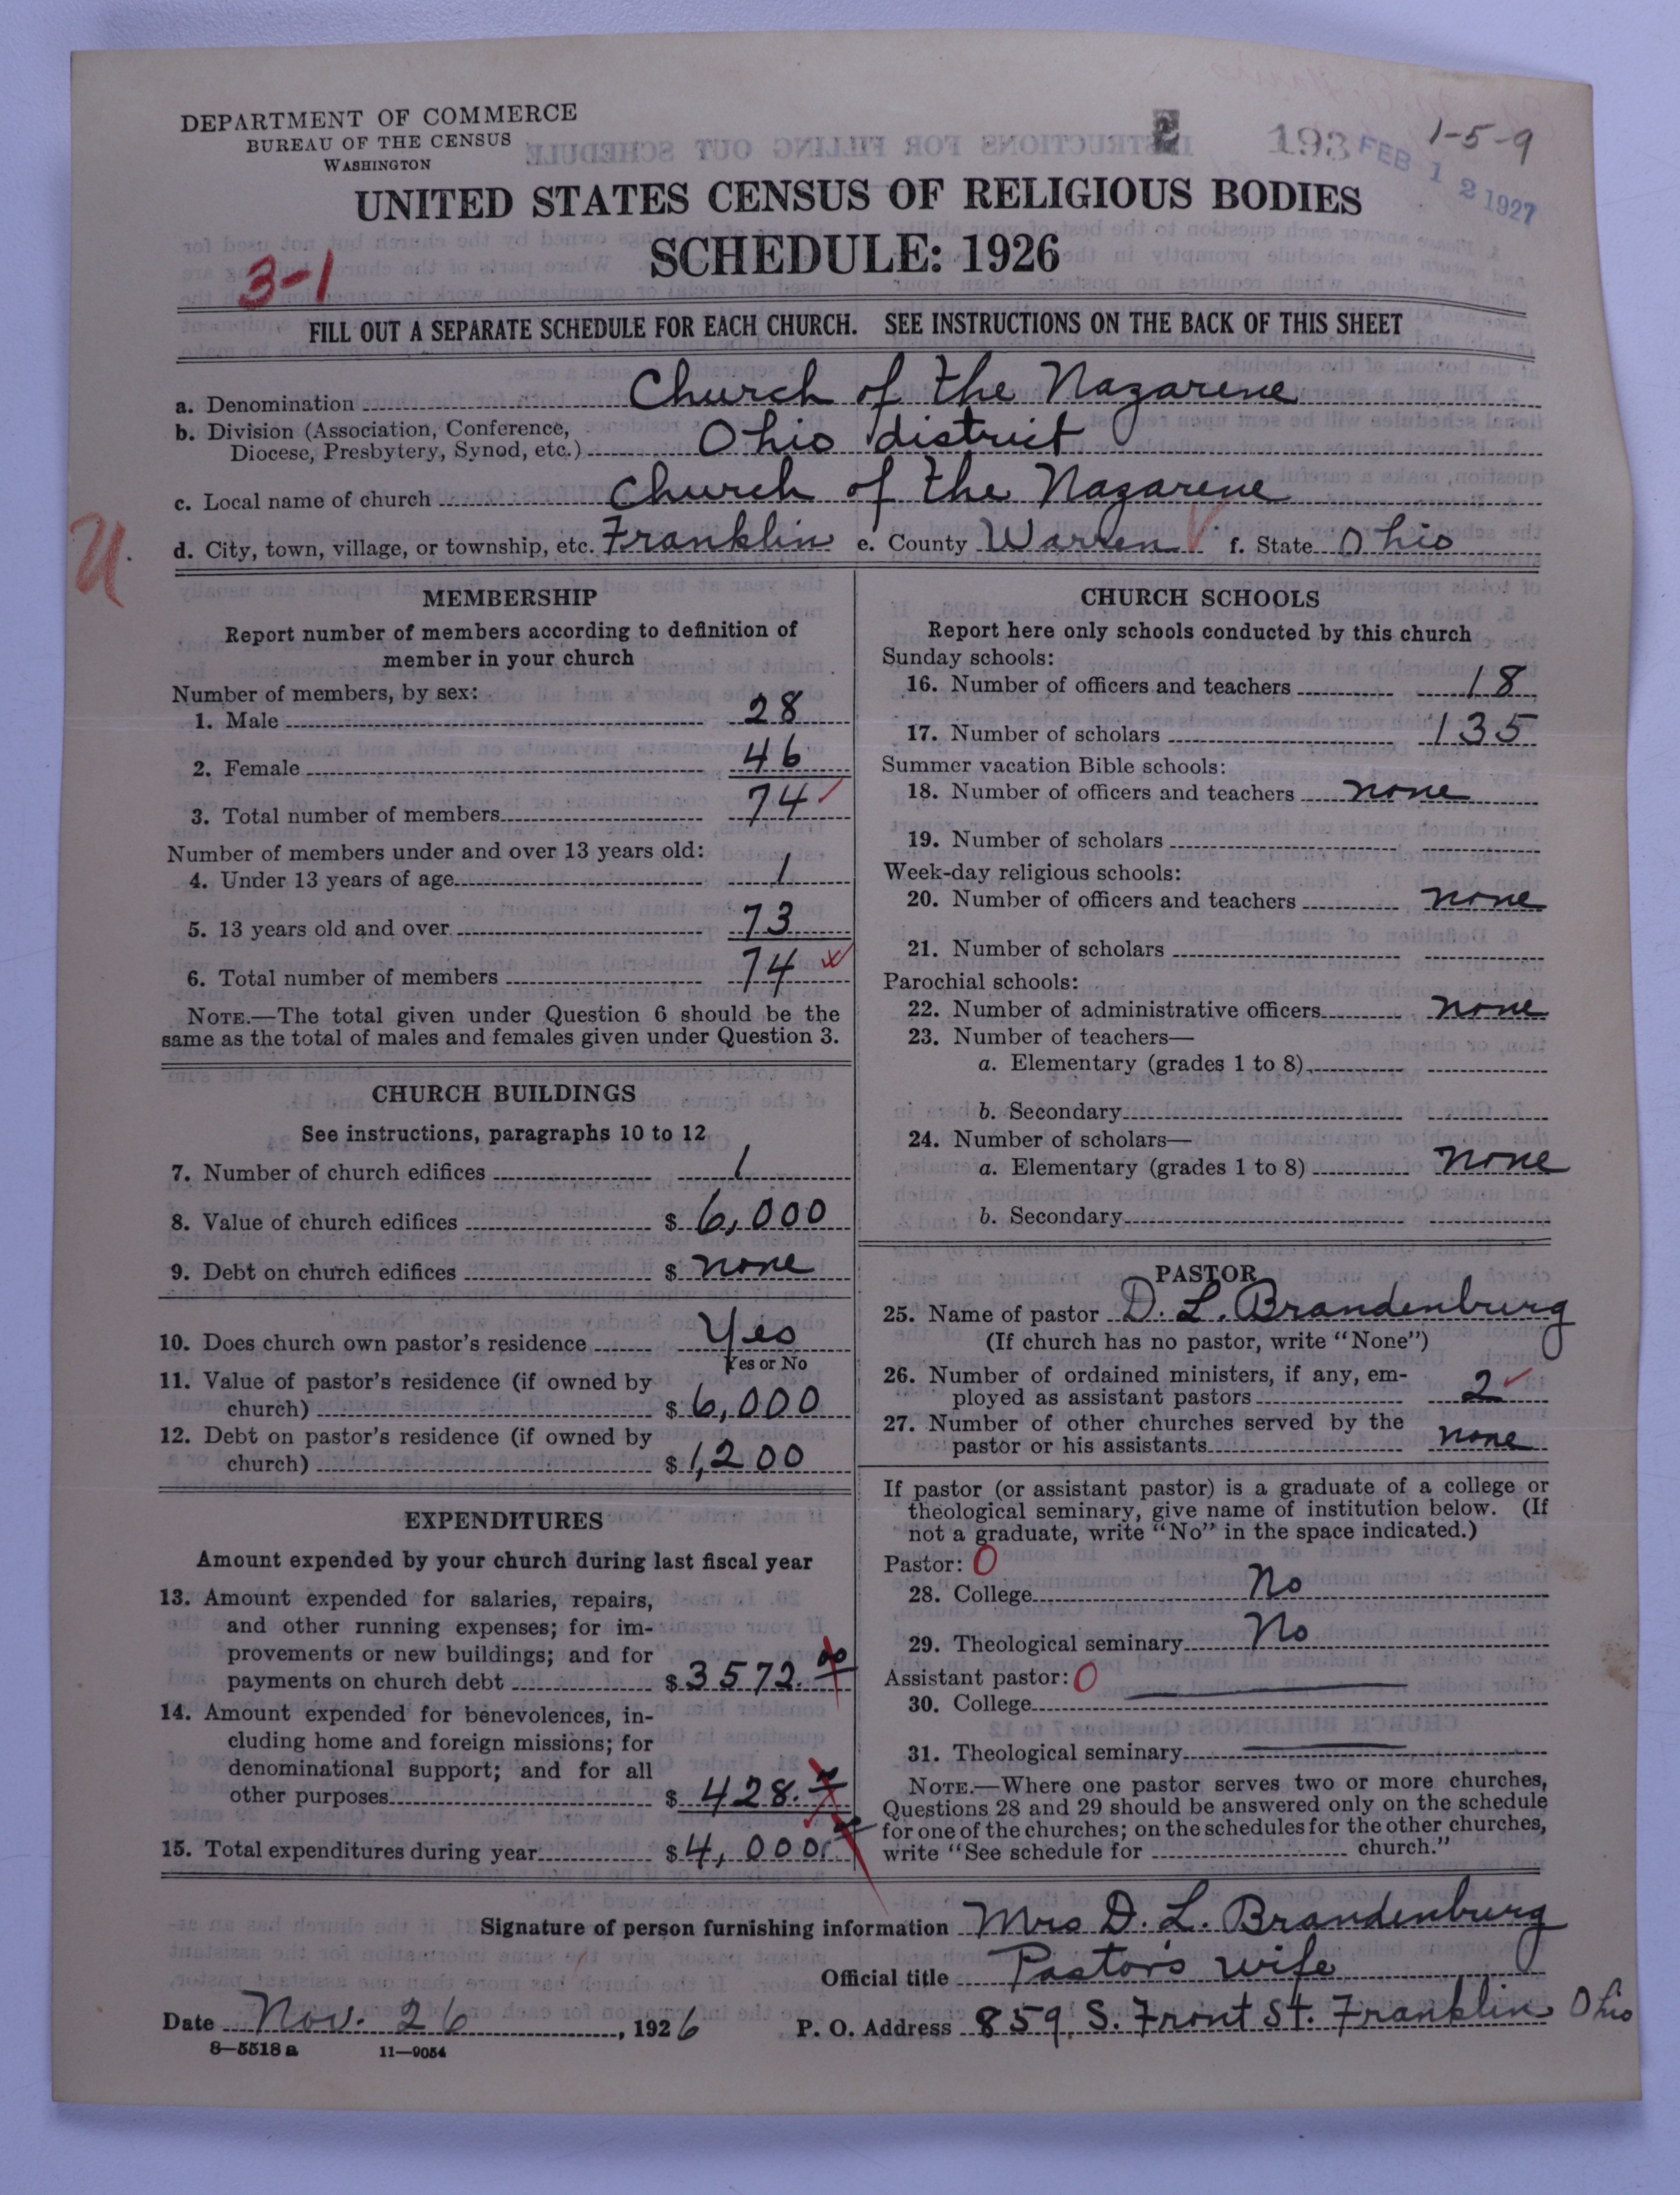 DEPARTMENT OF COMMERCE
BUREAU OF THE CENSUS
WASHINGTON
2 193
1-5-9
FEB 12 1927
UNITED STATES CENSUS OF RELIGIOUS BODIES
SCHEDULE: 1926
3-1
FILL OUT A SEPARATE SCHEDULE FOR EACH CHURCH. SEE INSTRUCTIONS ON THE BACK OF THIS SHEET
a. Denomination Church of the Nazarene
b. Division (Association, Conference, Diocese, Presbytery, Synod, etc.) Ohio district
c. Local name of church Church of the Nazarene
U.
d. City, town, village, or township, etc. Franklin e. County Warren f. State Ohio
MEMBERSHIP
Report number of members according to definition of
member in your church
Number of members, by sex:
1. Male 28
2. Female 46
3. Total number of members 74
Number of members under and over 13 years old:
4. Under 13 years of age 1
5. 13 years old and over 73
6. Total number of members 74
NOTE.—The total given under Question 6 should be the
same as the total of males and females given under Question 3.
CHURCH BUILDINGS
See instructions, paragraphs 10 to 12
7. Number of church edifices 1
8. Value of church edifices $ 6,000
9. Debt on church edifices $ none
10. Does church own pastor's residence Yes
Yes or No
11. Value of pastor's residence (if owned by
church) $ 6,000
12. Debt on pastor's residence (if owned by
church) $ 1,200
EXPENDITURES
Amount expended by your church during last fiscal year
13. Amount expended for salaries, repairs,
and other running expenses; for im-
provements or new buildings; and for
payments on church debt $ 3572.00
14. Amount expended for benevolences, in-
cluding home and foreign missions; for
denominational support; and for all
other purposes $ 428.
15. Total expenditures during year $ 4,000
CHURCH SCHOOLS
Report here only schools conducted by this church
Sunday schools:
16. Number of officers and teachers 18
17. Number of scholars 135
Summer vacation Bible schools:
18. Number of officers and teachers none
19. Number of scholars
Week-day religious schools:
20. Number of officers and teachers none
21. Number of scholars
Parochial schools:
22. Number of administrative officers none
23. Number of teachers—
a. Elementary (grades 1 to 8)
b. Secondary
24. Number of scholars—
a. Elementary (grades 1 to 8) none
b. Secondary
PASTOR
25. Name of pastor D. L. Brandenburg
(If church has no pastor, write "None")
26. Number of ordained ministers, if any, em-
ployed as assistant pastors 2
27. Number of other churches served by the
pastor or his assistants none
If pastor (or assistant pastor) is a graduate of a college or
theological seminary, give name of institution below. (If
not a graduate, write "No" in the space indicated.)
Pastor: 0
28. College No
29. Theological seminary No
Assistant pastor: 0
30. College
31. Theological seminary
NOTE.—Where one pastor serves two or more churches,
Questions 28 and 29 should be answered only on the schedule
for one of the churches; on the schedules for the other churches,
write "See schedule for church."
Signature of person furnishing information Mrs D. L. Brandenburg
Official title Pastor's wife
Date Nov. 26, 1926 P. O. Address 859 S. Front St. Franklin Ohio
8—5518a 11—9054